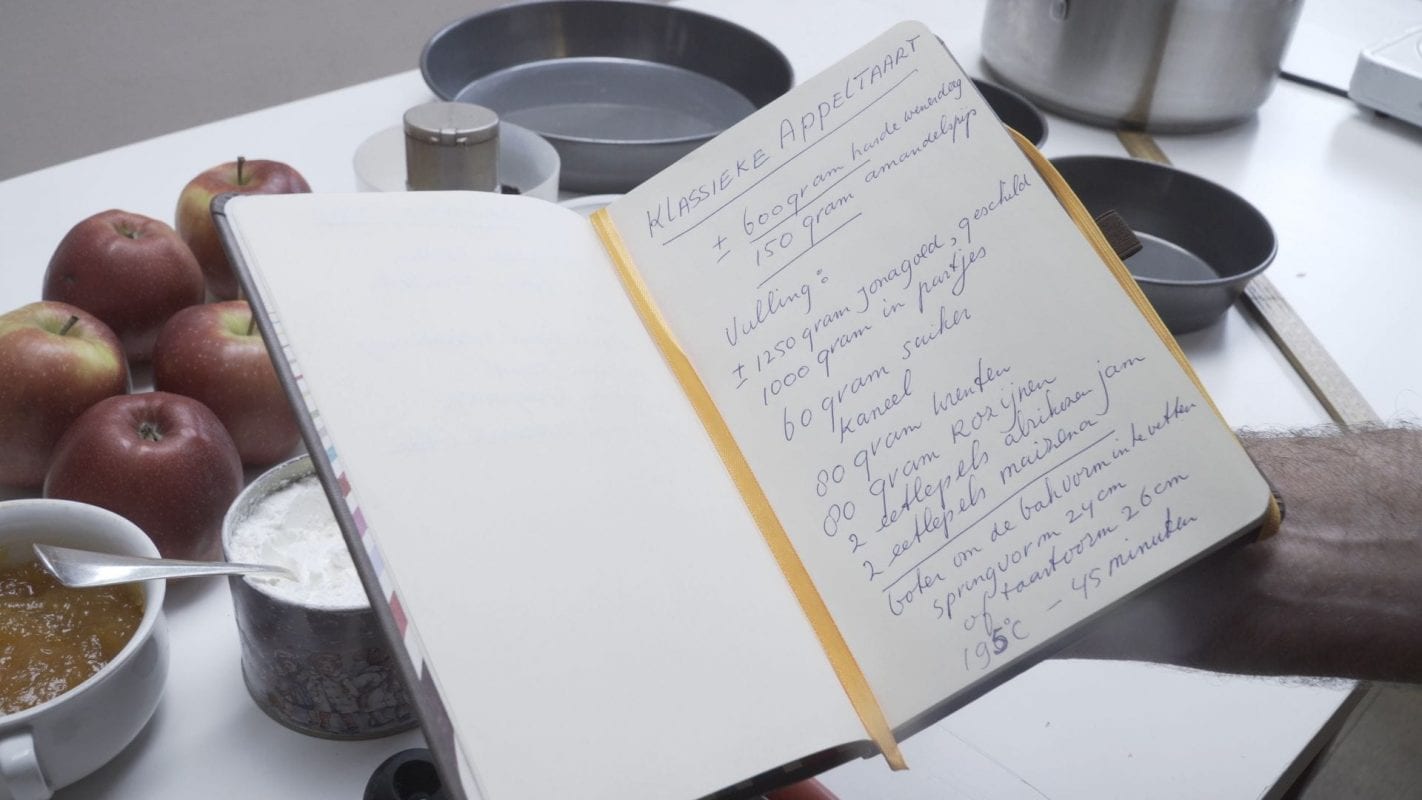 KLASSIEKE APPELTAART
± 600 gram harde wenerdeeg
150 gram amandelspijs
Vulling:
± 1250 gram jonagold, geschild
1000 gram in partjes
60 gram suiker
kaneel
80 gram krenten
80 gram rozijnen
2 eetlepels abrikozen jam
2 eetlepels maizena
boter om de bakvorm in te vetten
springvorm 24 cm
of taartvorm 26 cm
195°C - 45 minuten